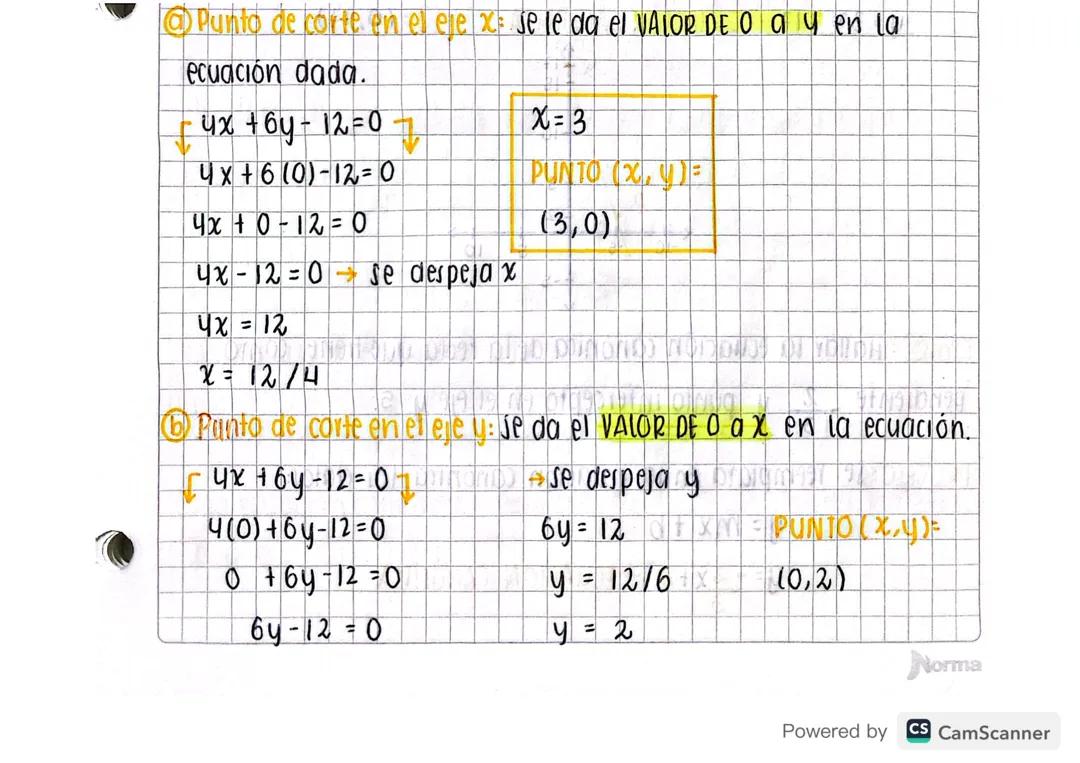 ⓐ Punto de corte en el eje x: se le da el VALOR DE 0 a y en la
ecuación dada.
4x + 6y - 12 = 0
4x + 6(0) - 12 = 0
4x + 0 - 12 = 0
4x - 12 = 0 → se despeja x
4x = 12
x = 12 / 4
x = 3
PUNTO (x, y) =
(3,0)
ⓑ Punto de corte en el eje y: se da el VALOR DE 0 a x en la ecuación.
4x + 6y - 12 = 0
4(0) + 6y - 12 = 0
0 + 6y - 12 = 0
6y - 12 = 0
→ se despeja y
6y = 12
y = 12/6
y = 2
PUNTO (x,y) =
(0,2)
Norma
Powered by CS CamScanner